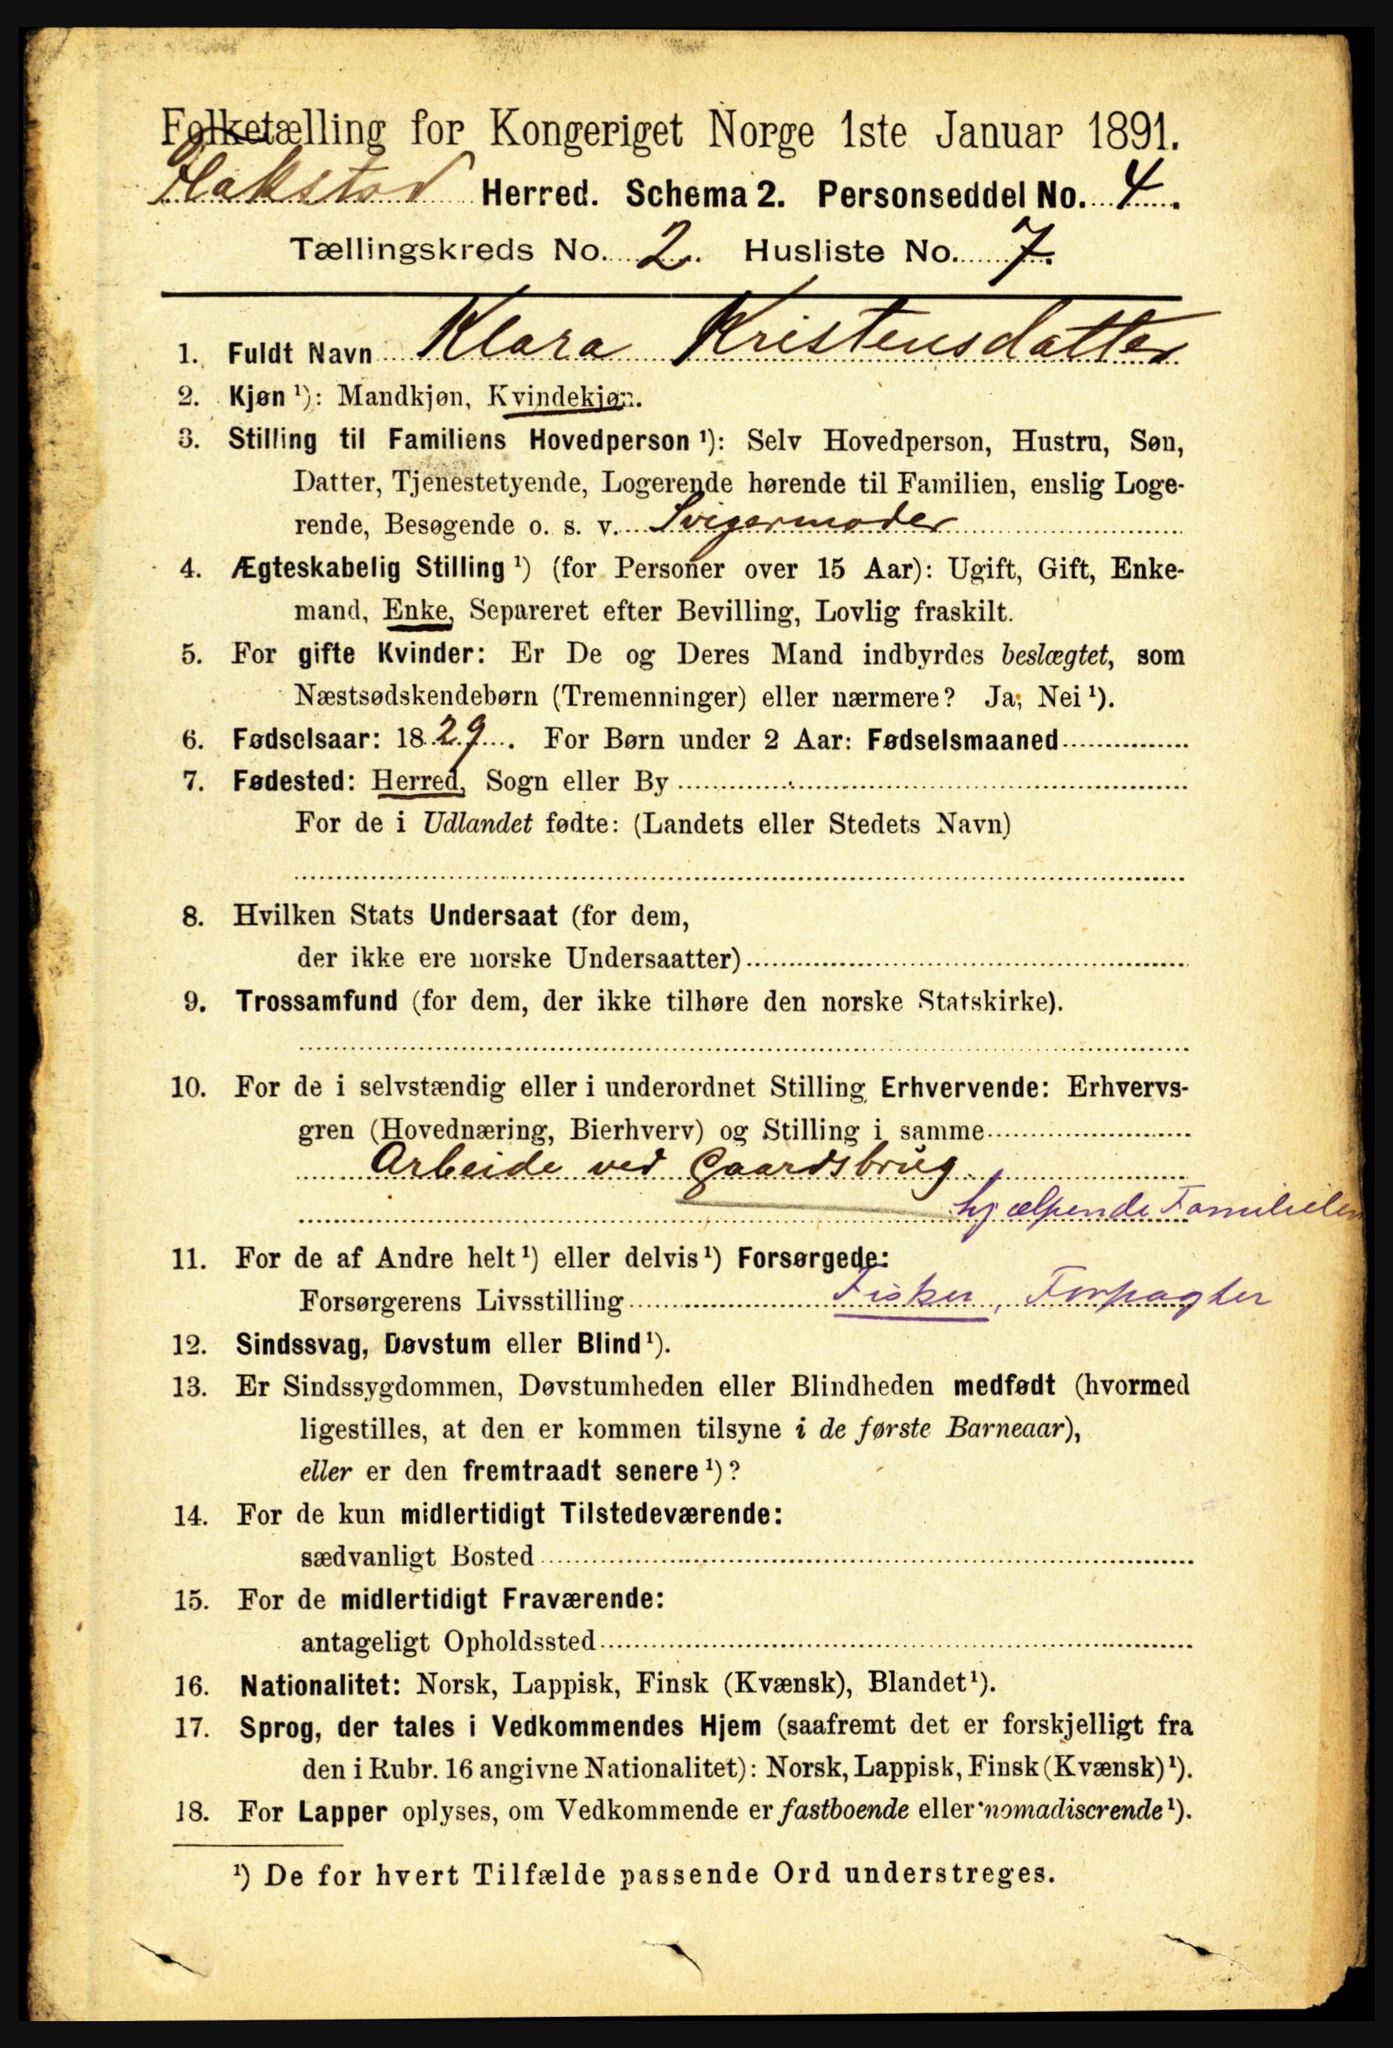 Folketælling for Kongeriget Norge 1ste Januar 1891.
Flakstad Herred. Schema 2. Personseddel No. 4.
Tællingskreds No. 2. Husliste No. 7.
1. Fuldt Navn Klara Kristensdatter
2. Kjøn ¹): Mandkjøn, Kvindekjøn.
3. Stilling til Familiens Hovedperson ¹): Selv Hovedperson, Hustru, Søn,
Datter, Tjenestetyende, Logerende hørende til Familien, enslig Loge-
rende, Besøgende o. s. v. Svigermoder
4. Ægteskabelig Stilling ¹) (for Personer over 15 Aar): Ugift, Gift, Enke-
mand, Enke, Separeret efter Bevilling, Lovlig fraskilt.
5. For gifte Kvinder: Er De og Deres Mand indbyrdes beslægtet, som
Næstsødskendebørn (Tremenninger) eller nærmere? Ja; Nei ¹).
6. Fødselsaar: 1829. For Børn under 2 Aar: Fødselsmaaned
7. Fødested: Herred, Sogn eller By
For de i Udlandet fødte: (Landets eller Stedets Navn)
8. Hvilken Stats Undersaat (for dem,
der ikke ere norske Undersaatter)
9. Trossamfund (for dem, der ikke tilhøre den norske Statskirke).
10. For de i selvstændig eller i underordnet Stilling Erhvervende: Erhvervs-
gren (Hovednæring, Bierhverv) og Stilling i samme
Arbeide ved Gaardsbrug.
hjælpende Familielem
11. For de af Andre helt ¹) eller delvis ¹) Forsørgede:
Forsørgerens Livsstilling Fisker, Forpagter
12. Sindssvag, Døvstum eller Blind ¹).
13. Er Sindssygdommen, Døvstumheden eller Blindheden medfødt (hvormed
ligestilles, at den er kommen tilsyne i de første Barneaar),
eller er den fremtraadt senere ¹)?
14. For de kun midlertidigt Tilstedeværende:
sædvanligt Bosted
15. For de midlertidigt Fraværende:
antageligt Opholdssted
16. Nationalitet: Norsk, Lappisk, Finsk (Kvænsk), Blandet ¹).
17. Sprog, der tales i Vedkommendes Hjem (saafremt det er forskjelligt fra
den i Rubr. 16 angivne Nationalitet): Norsk, Lappisk, Finsk (Kvænsk) ¹).
18. For Lapper oplyses, om Vedkommende er fastboende eller nomadiserende ¹).
¹) De for hvert Tilfælde passende Ord understreges.